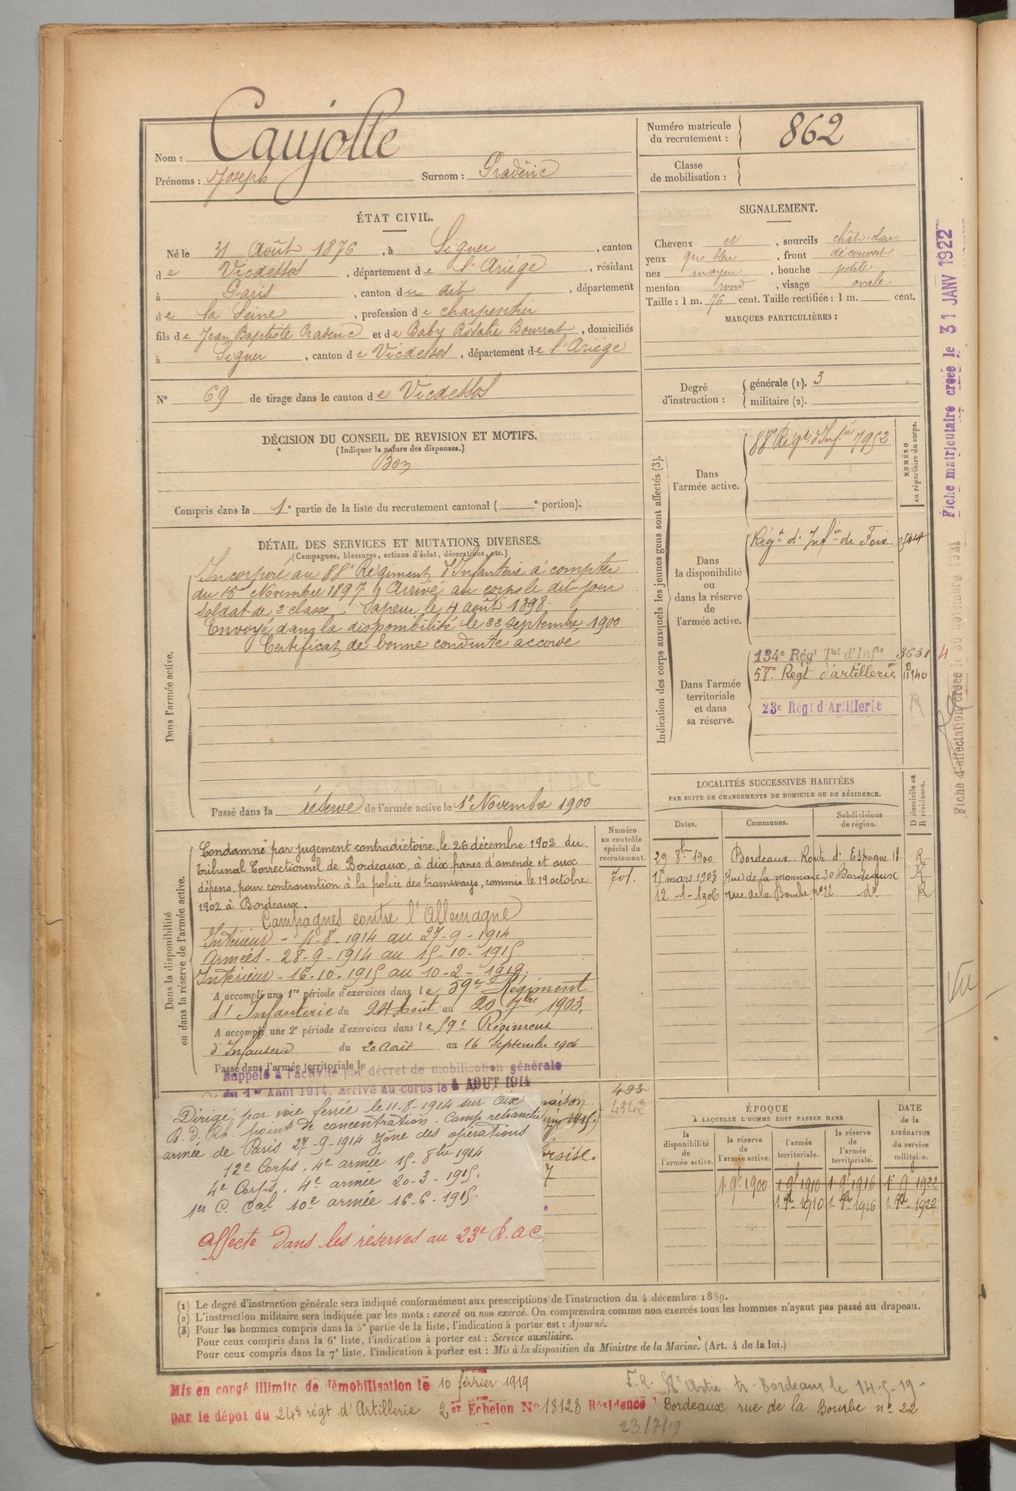 Nom : Caujolle
Prénoms : Joseph Surnom : Pradéric
Numéro matricule du recrutement : 862
Classe de mobilisation :
ÉTAT CIVIL.
Né le 31 Août 1876, à Siguer, canton
de Vicdessos, département de l'Ariège, résidant
à Paris, canton du dit, département
de la Seine, profession de charpentier
fils de Jean Baptiste Praderic et de Baby Rosalie Bournt, domiciliés
à Siguer, canton de Vicdessos, département de l'Ariège
N° 69 de tirage dans le canton de Vicdessos
SIGNALEMENT.
Cheveux et, sourcils chât-clair
yeux gris bleu, front découvert
nez moyen, bouche petite
menton rond, visage ovale
Taille : 1 m. 76 cent. Taille rectifiée : 1 m. cent.
MARQUES PARTICULIÈRES :
Degré d'instruction : générale (1). 3
militaire (2).
DÉCISION DU CONSEIL DE REVISION ET MOTIFS.
(Indiquer la nature des dispenses.)
Bon
Compris dans la 1e partie de la liste du recrutement cantonal ( e portion).
DÉTAIL DES SERVICES ET MUTATIONS DIVERSES.
(Campagnes, blessures, actions d'éclat, décorations, etc.)
Dans l'armée active.
Incorporé au 88e Régiment d'Infanterie à compter
du 15 Novembre 1897. Arrivé au corps le dit jour
soldat de 2e classe. Sapeur le 4 août 1898.
Envoyé dans la disponibilité le 22 septembre 1900
Certificat de bonne conduite accordé
Passé dans la réserve de l'armée active le 1er Novembre 1900
Indication des corps auxquels les jeunes gens sont affectés (3).
NUMÉRO au répertoire du corps.
Dans l'armée active.
88e Régt d'Infie 7952
Dans la disponibilité ou dans la réserve de l'armée active.
Régt d'Infie de Foix
Dans l'armée territoriale et dans sa réserve.
134e Régt Tal d'Infie 3631
58e Régt d'artillerie
23e Régt d'Artillerie
Fiche matriculaire créée le 31 JANV 1922
Fiche d'affectation créée le
LOCALITÉS SUCCESSIVES HABITÉES
PAR SUITE DE CHANGEMENTS DE DOMICILE OU DE RÉSIDENCE.
Dates. Communes. Subdivisions de région. D domicile ou R résidence.
29 8bre 1900 Bordeaux. Route d'Espagne 18 R
17 mars 1903 Rue de la monnaie 30 Bordeaux R
12-1-1906 rue de la Bombe n° 22 do R
Numéro au contrôle spécial du recrutement.
701.
Dans la disponibilité ou dans la réserve de l'armée active.
Condamné par jugement contradictoire, le 26 décembre 1902 du
tribunal Correctionnel de Bordeaux, à dix francs d'amende et aux
dépens, pour contravention à la police des tramways, commise le 19 octobre
1902 à Bordeaux.
Campagnes contre l'Allemagne
Intérieur - 4-8-1914 au 27-9-1914
Armées - 28-9-1914 au 15-10-1915
Intérieur - 16-10-1915 au 10-2-1919.
A accompli une 1re période d'exercices dans le 59e Régiment
d'Infanterie du 24 Août au 20 7bre 1903.
A accompli une 2e période d'exercices dans le 59e Régiment
d'Infanterie du 20 Août au 16 Septembre 1906
Passé dans l'armée territoriale le
Rappelé à l'activité par décret de mobilisation générale
du 1er Août 1914, arrivé au corps le 4 AOUT 1914
Dirigé par voie ferrée le 11-8-1914 sur Aix
point de concentration. Camp retranché
armée de Paris 27-9-1914 zône des opérations
12e Corps. 4e armée 15. 8bre 1914
4e Corps. 4e armée 20-3-1915.
1er C. Cal 10e armée 16-6-1915.
affecté dans les réserves au 23e R.A.C.
493
4342
ÉPOQUE
À LAQUELLE L'HOMME DOIT PASSER DANS
la disponibilité de l'armée active. la réserve de l'armée active. l'armée territoriale. la réserve de l'armée territoriale.
DATE de la LIBÉRATION du service militaire.
1 9bre 1900 1 9bre 1910 1 9bre 1916 1er 9 1922
1 8bre 1910 1 8bre 1916 1 8bre 1922
(1) Le degré d'instruction générale sera indiqué conformément aux prescriptions de l'instruction du 4 décembre 1889.
(2) L'instruction militaire sera indiquée par les mots : exercé ou non exercé. On comprendra comme non exercés tous les hommes n'ayant pas passé au drapeau.
(3) Pour les hommes compris dans la 5e partie de la liste, l'indication à porter est : Ajourné.
Pour ceux compris dans la 6e liste, l'indication à porter est : Service auxiliaire.
Pour ceux compris dans la 7e liste, l'indication à porter est : Mis à la disposition du Ministre de la Marine. (Art. 4 de la loi.)
Mis en congé illimité de démobilisation le 10 février 1919
par le dépôt du 24e régt d'Artillerie 2er Echelon N° 18123 Résidence Bordeaux rue de la Bourbe n° 22
Bordeaux le 14-5-19-
23/7/19